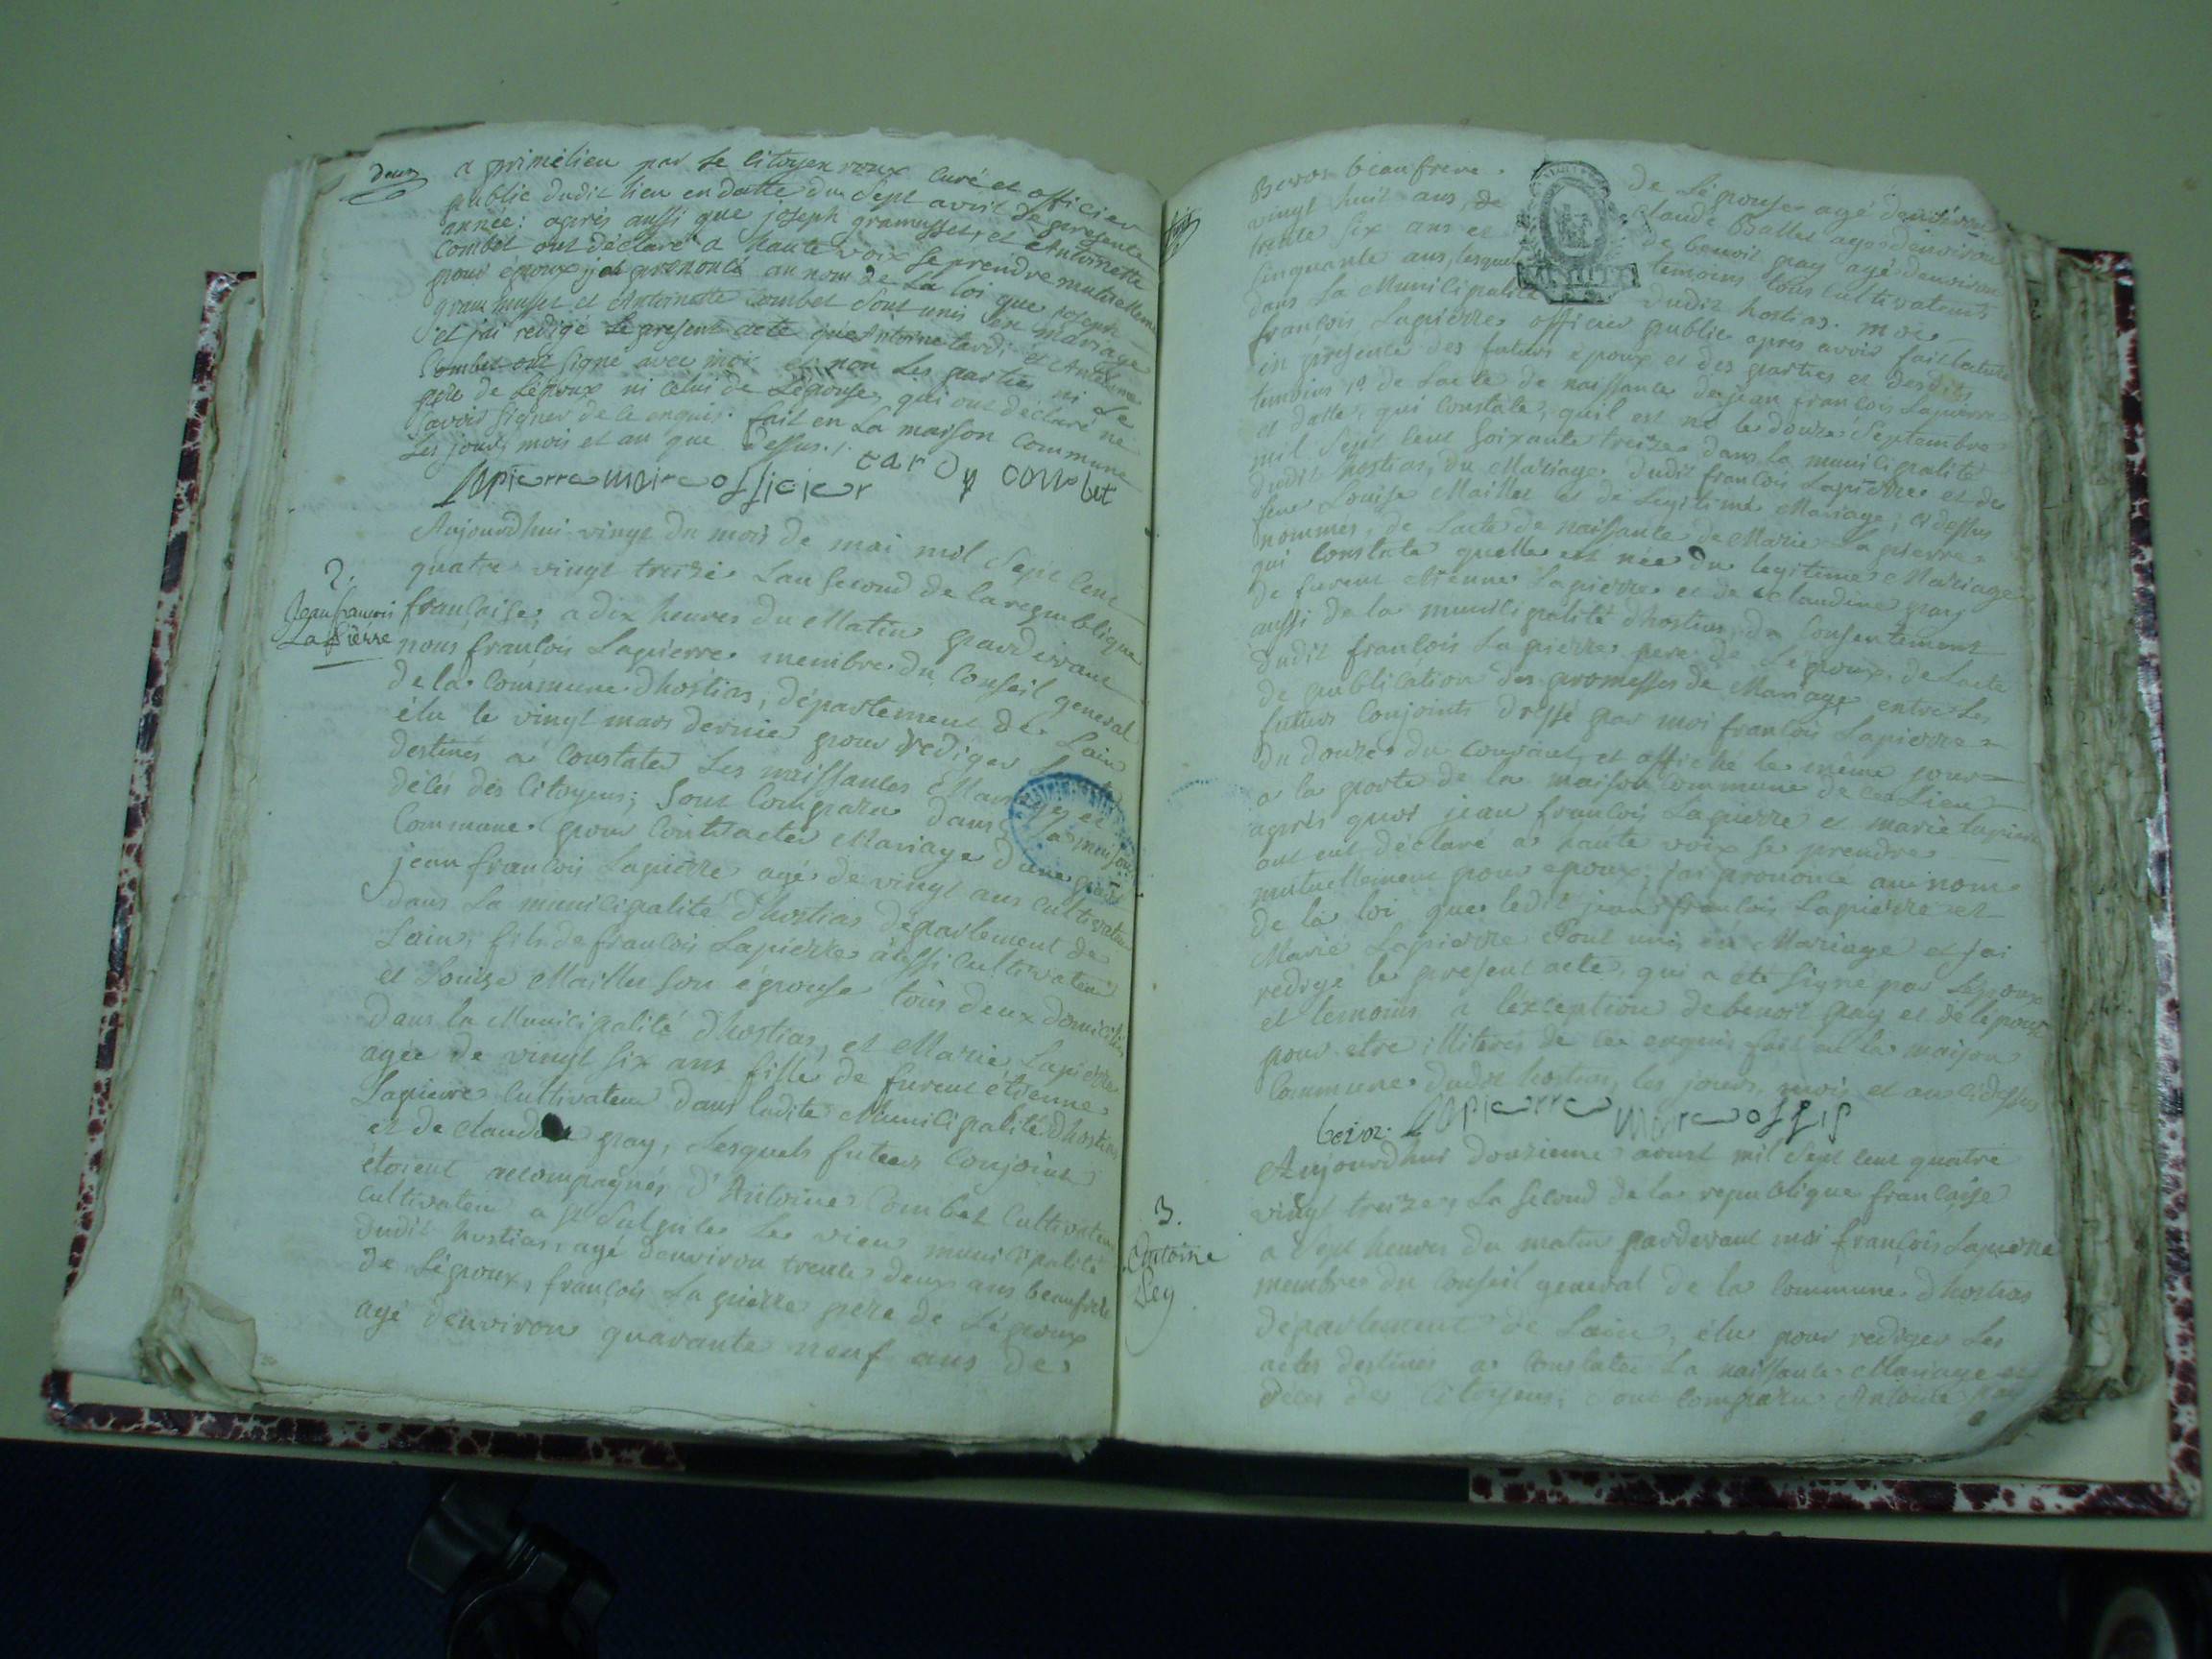 deux
a primélieu par le citoyen roux curé et officier
public dudit lieu en datte du sept avril de presente
année: apres aussi que joseph gramusset, et Antoinette
combet ont déclaré a haute voix se prendre mutuellement
pour époux j'ai prenoncé au nom de La loi que joseph
gramusset et Antoinette Combet sont unis en mariage
et j'ai redigé le present acte que Antoine tardi et Antoine
Combet ont signé avec moi et non Les parties ni Le
pere de Lépoux ni celui de Lépouse, qui ont déclaré ne
savoir signer de ce enquis. fait en La maison Commune
Les jour, mois et an que dessus./.
Lapierre maire officier tardy combet
2.
Jean françois
Lapierre
Aujourdhui vingt du mois de mai mil sept cent
quatre vingt treize Lan second de la republique
française, a dix heures du Matin pardevant
nous françois Lapierre membre du Conseil general
de la Commune dhostias, département de Lain
élu le vingt mars dernier pour rediger
destinés a constater Les naissances Mariages et
décés des Citoyens; sont Comparu dans la maison
Commune pour Contracter Mariage d'une part
jean françois Lapierre agé de vingt ans cultivateur
dans La municipalité dhostias département de
Lain, fils de françois Lapierre aussi Cultivateur
et Louise Maillet son épouse tous deux domiciliés
dans la Municipalité dhostias, et Marie Lapierre
agée de vingt six ans fille de furent étienne
Lapierre Cultivateur dans ladite Municipalité dhostias
et de Claudine gay, Lesquels futurs Conjoints
étoient accompagnés d'Antoine Combet Cultivateur
cultivateur a st Sulpice Le vieux municipalité
dudit hostias, agé denviron trente deux ans beaufrere
de Lépoux, françois Lapierre pere de Lépoux
agé denviron quarante neuf ans de
trois
beaufrere de Lépouse agé denviron
vingt huit ans, de claude Ballet agé denviron
trente six ans et de benoit gay agé denviron
Cinquante ans, lesquels temoins tous Cultivateurs
dans La Municipalité dudit hostias. moi
françois Lapierre officier public apres avoir fait lecture
en presence des futurs époux et des parties et desdits
temoins 1o. de Lacte de naissance de jean françois Lapierre
et datte, qui Constate, quil est né le douze Septembre
mil sept cent soixante treize dans la municipalité
dudit hostias, du Mariage dudit françois Lapierre et de
feue Louise Maillet et de Legitime Mariage, ci dessus
nommés, de Lacte de naissance de Marie Lapierre
qui Constate quelle est née du legitime Mariage
de furent étienne Lapierre et de claudine gay
aussi de la municipalité dhostias, du Consentement
dudit françois Lapierre pere de Lépoux, de Lacte
de publication des promesses de Mariage entre Les
futurs Conjoints dressé par moi françois Lapierre
du douze du courant, et affiché le même jour
a la porte de la maison Commune de ce Lieu
après quoi jean françois Lapierre et marie Lapierre
ont eut déclaré a haute voix se prendre
mutuellement pour époux, j'ai prononcé au nom
de la loi que ledit jean françois Lapierre et
Marie Lapierre sont unis en Mariage et jai
redigé le present acte, qui a été signé par Lepoux
et temoins a lexception de benoit gay et de lépouse
pour etre illiterés de ce enquis fait en la maison
Commune dudit hostias, les jours, mois et an ci dessus
Lapierre maire offis
3.
Antoine
Rey
Aujourdhui douzieme aoust mil sept cent quatre
vingt treize, La second de la republique française
a sept heures du matin pardevant moi françois Lapierre
membre du Conseil general de la Commune dhostias
département de Lain, élu pour rediger Les
actes destinés a Constater La naissance Mariage et
décés des Citoyens, sont comparu Antoine